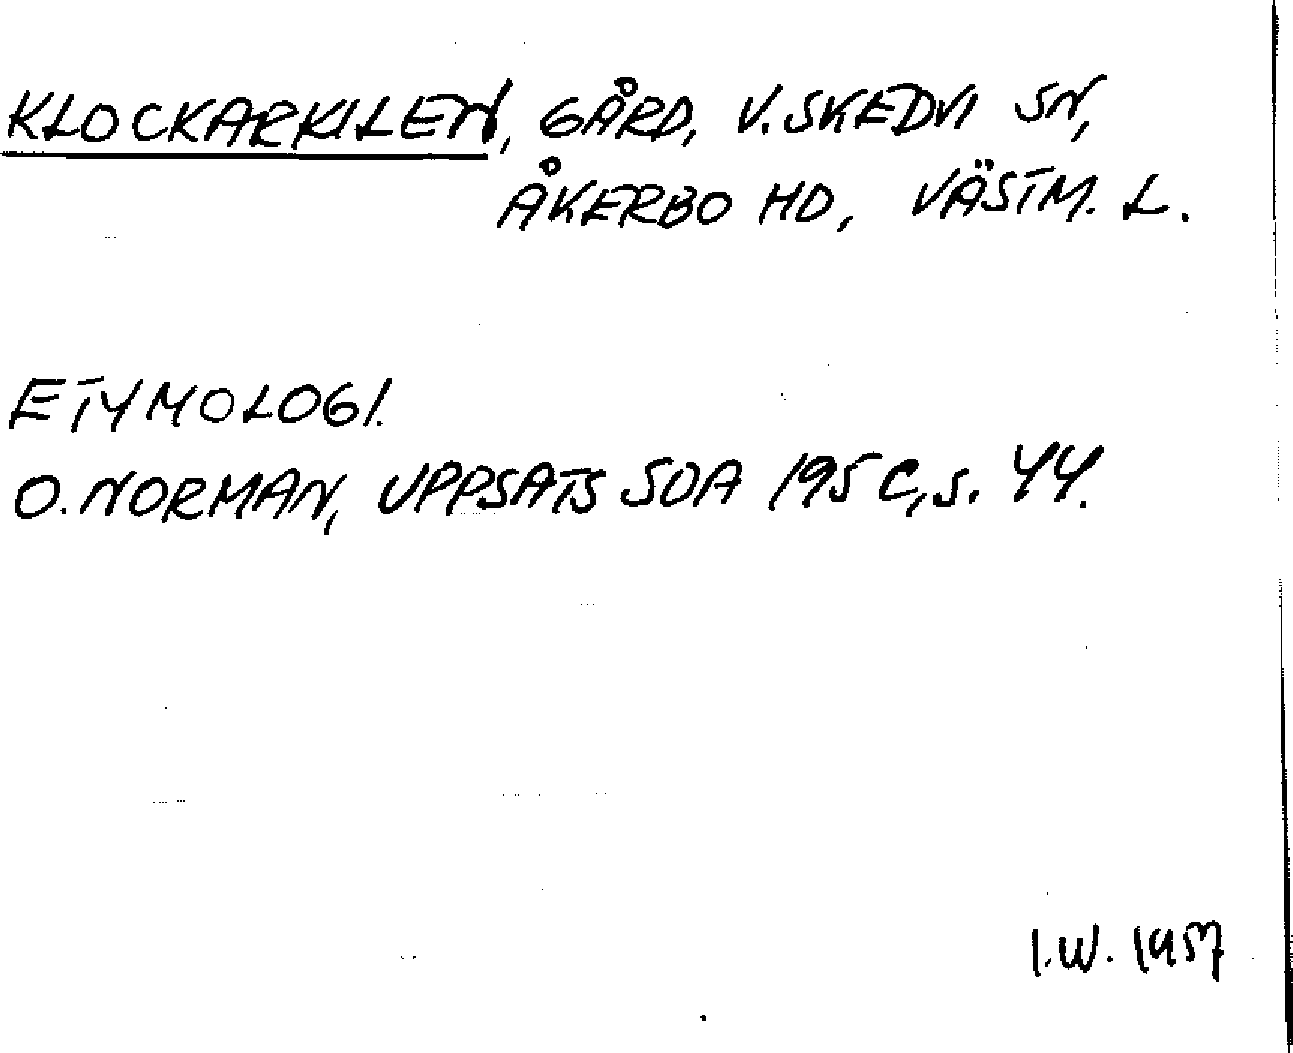 KLOCKARKILEN, GÅRD, V. SKEDVI SN,
ÅKERBO HD, VÄSTM. L.
ETYMOLOGI.
O. NORMAN, UPPSATS SOA 195C, s. 44.
I.W. 1957